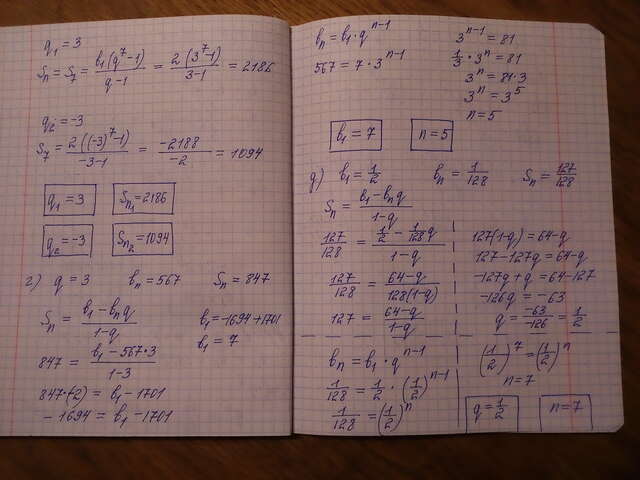 q₁ = 3
Sₙ = S₇ = b₁(q⁷-1)/(q-1) = 2(3⁷-1)/(3-1) = 2186
q₂ = -3
S₇ = 2((-3)⁷-1)/(-3-1) = -2188/-2 = 1094
q₁ = 3 Sₙ₁ = 2186
q₂ = -3 Sₙ₂ = 1094
г) q = 3 bₙ = 567 Sₙ = 847
Sₙ = (b₁ - bₙq)/(1-q)
847 = (b₁ - 567·3)/(1-3)
847·(-2) = b₁ - 1701
-1694 = b₁ - 1701
b₁ = -1694 + 1701
b₁ = 7
bₙ = b₁·qⁿ⁻¹
567 = 7·3ⁿ⁻¹
3ⁿ⁻¹ = 81
1/3·3ⁿ = 81
3ⁿ = 81·3
3ⁿ = 3⁵
n = 5
b₁ = 7 n = 5
g) b₁ = 1/2 bₙ = 1/128 Sₙ = 127/128
Sₙ = (b₁ - bₙq)/(1-q)
127/128 = (1/2 - 1/128 q)/(1-q)
127/128 = (64-q)/(128(1-q))
127 = (64-q)/(1-q)
127(1-q) = 64-q
127-127q = 64-q
-127q+q = 64-127
-126q = -63
q = -63/-126 = 1/2
bₙ = b₁·qⁿ⁻¹
1/128 = 1/2·(1/2)ⁿ⁻¹
1/128 = (1/2)ⁿ
(1/2)⁷ = (1/2)ⁿ
n = 7
q = 1/2 n = 7